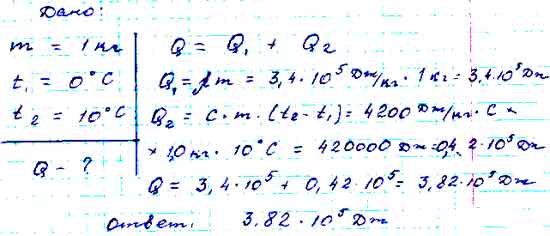 Дано:
m = 1 кг
t₁ = 0°C
t₂ = 10°C
Q - ?
Q = Q₁ + Q₂
Q₁ = λm = 3,4·10⁵ Дж/кг · 1 кг = 3,4·10⁵ Дж
Q₂ = c·m·(t₂-t₁) = 4200 Дж/кг·C ×
× 1,0 кг · 10°C = 420000 Дж = 0,4 2·10⁵ Дж
Q = 3,4·10⁵ + 0,42·10⁵ = 3,82·10⁵ Дж
Ответ: 3,82·10⁵ Дж